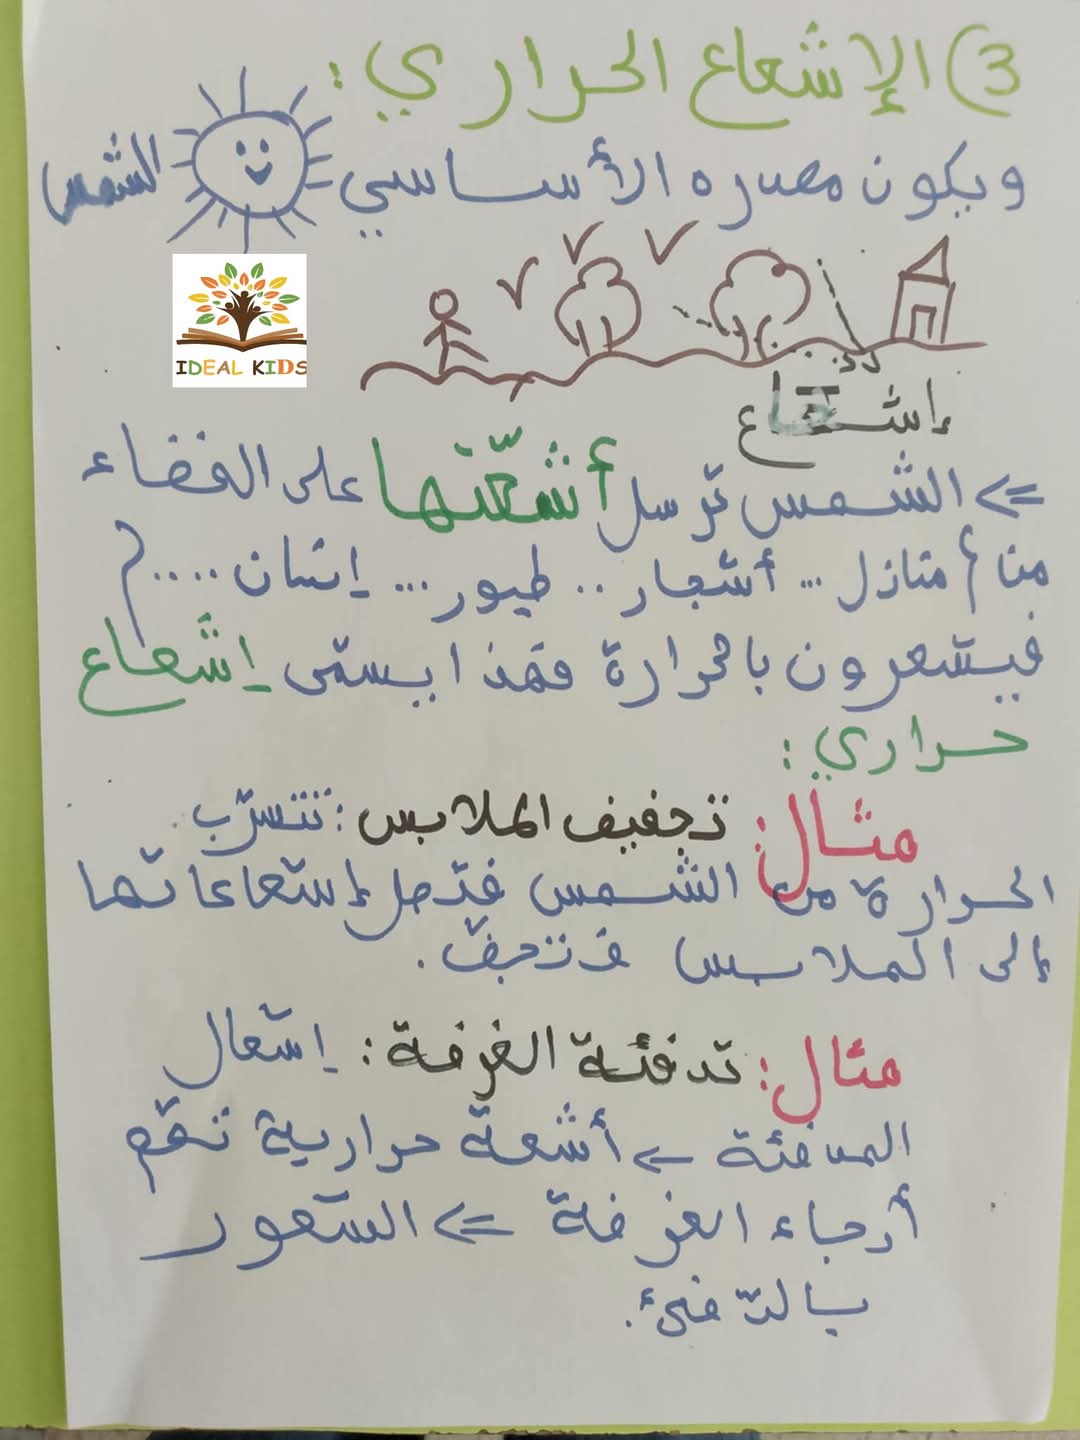 3) الإشعاع الحراري :
ويكون مصدره الأساسي الشمس
IDEAL KIDS
إشعاع
=> الشمس ترسل أشعّتها على الفضاء
من { منازل ... أشجار .. طيور ... إنسان .... }
فيشعرون بالحرارة فهذا يسمّى إشعاع
حراري :
مثال: تجفيف الملابس : تتسرّب
الحرارة من الشمس فتدخل إشعاعاتها
إلى الملابس فتجفّ .
مثال: تدفئة الغرفة : إشعال
المدفئة <- أشعة حرارية تعم
أرجاء الغرفة <= الشعور
بالدفئ .